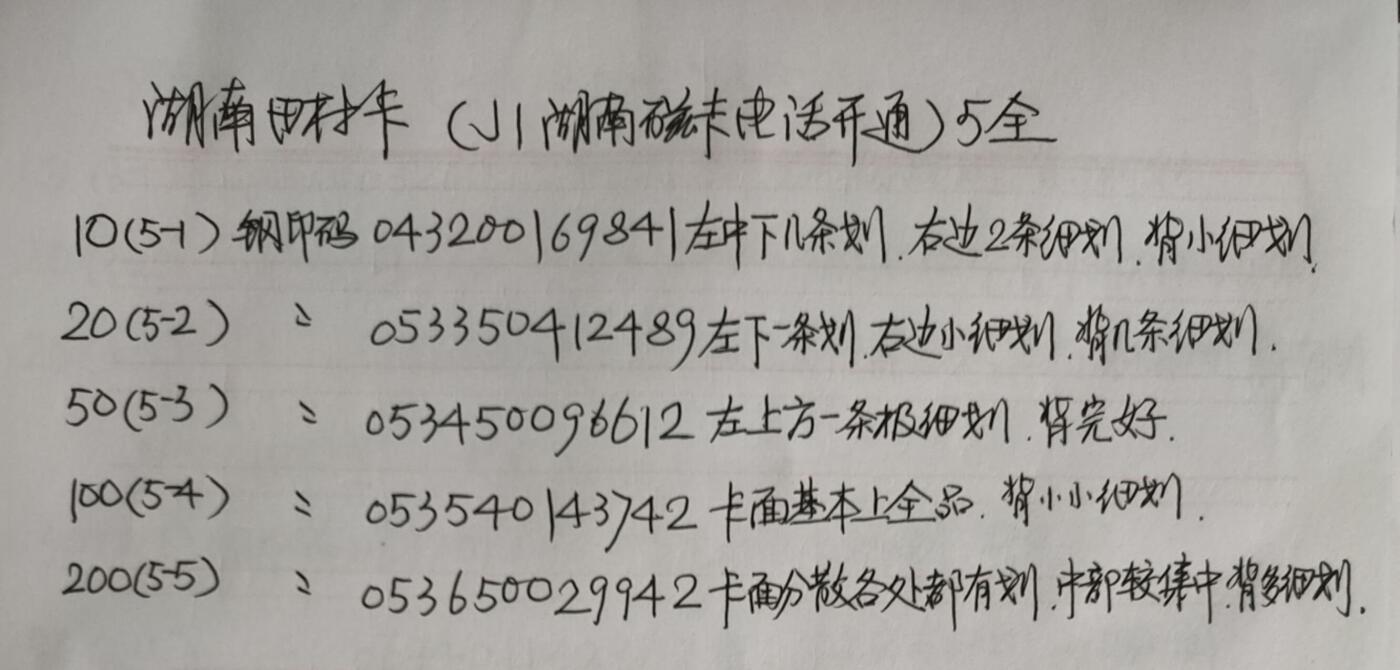 湖南田村卡（J1湖南磁卡电话开通）5全
10(5-1) 钢印码 043200169841左中下几条划.右边2条细划.背小细划.
20(5-2) 〃 053350412489左下一条划.右边小细划.背几条细划.
50(5-3) 〃 053450096612左上方一条极细划.背完好.
100(5-4) 〃 053540143742卡面基本上全品.背小小细划.
200(5-5) 〃 053650029942卡面分散各处都有划.中部较集中.背多细划.